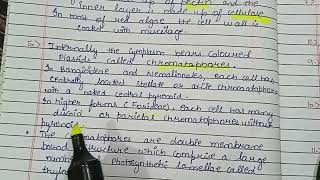 up of Pectin and the
inner layer is made up of cellulose
In most of red algae the cell wall is
coated with mucilage
5) Internally the cytoplasm bears coloured
Plastids called chromatophores.
In Bangioideae and Nemalionales, each cell has
centrally located stellate or axile chromatophore
with a naked central pyrenoid.
In higher forms (Florideae), each cell has many
discoid or parietal chromatophores without
pyrenoid
The chromatophores are double membrane
bound structure which comprise a large
number photosynthetic lamellae called